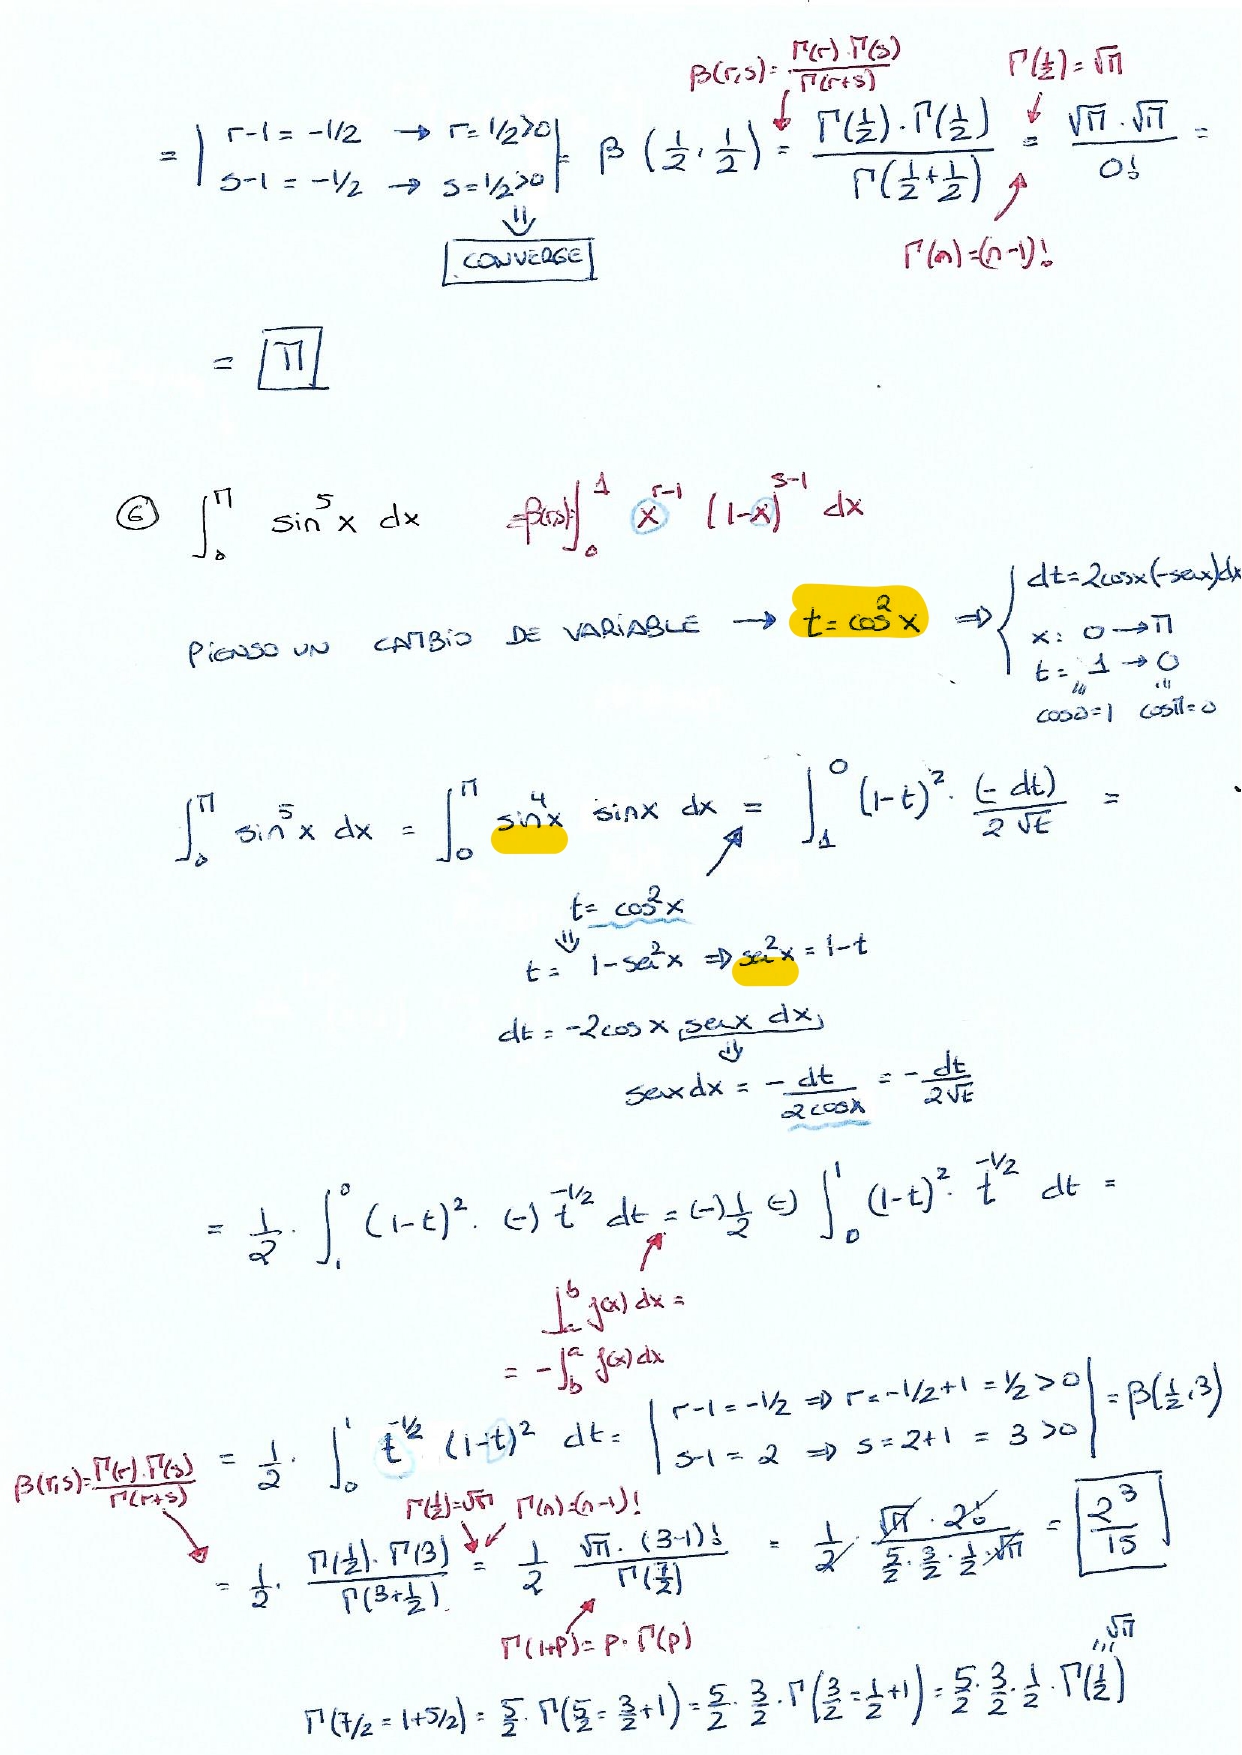 β(r,s)= Γ(r)·Γ(s) / Γ(r+s)    Γ(1/2)=√π
= | r-1 = -1/2 → r=1/2>0 | = β(1/2, 1/2) = Γ(1/2)·Γ(1/2) / Γ(1/2+1/2) = √π·√π / 0! =
s-1 = -1/2 → s=1/2>0
⇓
CONVERGE
Γ(n)=(n-1)!
= π
6 ∫₀^π sin⁵x dx    =β(r,s)= ∫₀¹ x^(r-1) (1-x)^(s-1) dx
PIENSO UN CAMBIO DE VARIABLE → t = cos²x ⇒ { dt=2cosx(-senx)dx
x: 0 → π
t = 1 → 0
cos0=1  cosπ=0
∫₀^π sin⁵x dx = ∫₀^π sin⁴x sinx dx = ∫₁⁰ (1-t)² · (-dt) / 2√t =
t = cos²x
⇓
t = 1-sen²x ⇒ sen²x = 1-t
dt = -2cosx senx dx
⇓
senx dx = - dt / 2cosx = - dt / 2√t
= 1/2 · ∫₁⁰ (1-t)² · (-) t^(-1/2) dt = (-) 1/2 (-) ∫₀¹ (1-t)² · t^(-1/2) dt =
∫ₐᵇ f(x) dx =
= - ∫_b^a f(x) dx
= 1/2 · ∫₀¹ t^(-1/2) (1-t)² dt = | r-1 = -1/2 ⇒ r = -1/2+1 = 1/2 > 0 | = β(1/2, 3)
s-1 = 2 ⇒ s = 2+1 = 3 > 0
β(r,s)= Γ(r)·Γ(s) / Γ(r+s)
Γ(1/2)=√π  Γ(n)=(n-1)!
= 1/2 · Γ(1/2)·Γ(3) / Γ(3+1/2) = 1/2 √π·(3-1)! / Γ(7/2) = 1/2 · √π·2! / 5/2·3/2·1/2·√π = 2³/15
Γ(1+p)= p·Γ(p)
√π
Γ(7/2 = 1+5/2) = 5/2 · Γ(5/2 = 3/2+1) = 5/2 · 3/2 · Γ(3/2 = 1/2+1) = 5/2 · 3/2 · 1/2 · Γ(1/2)